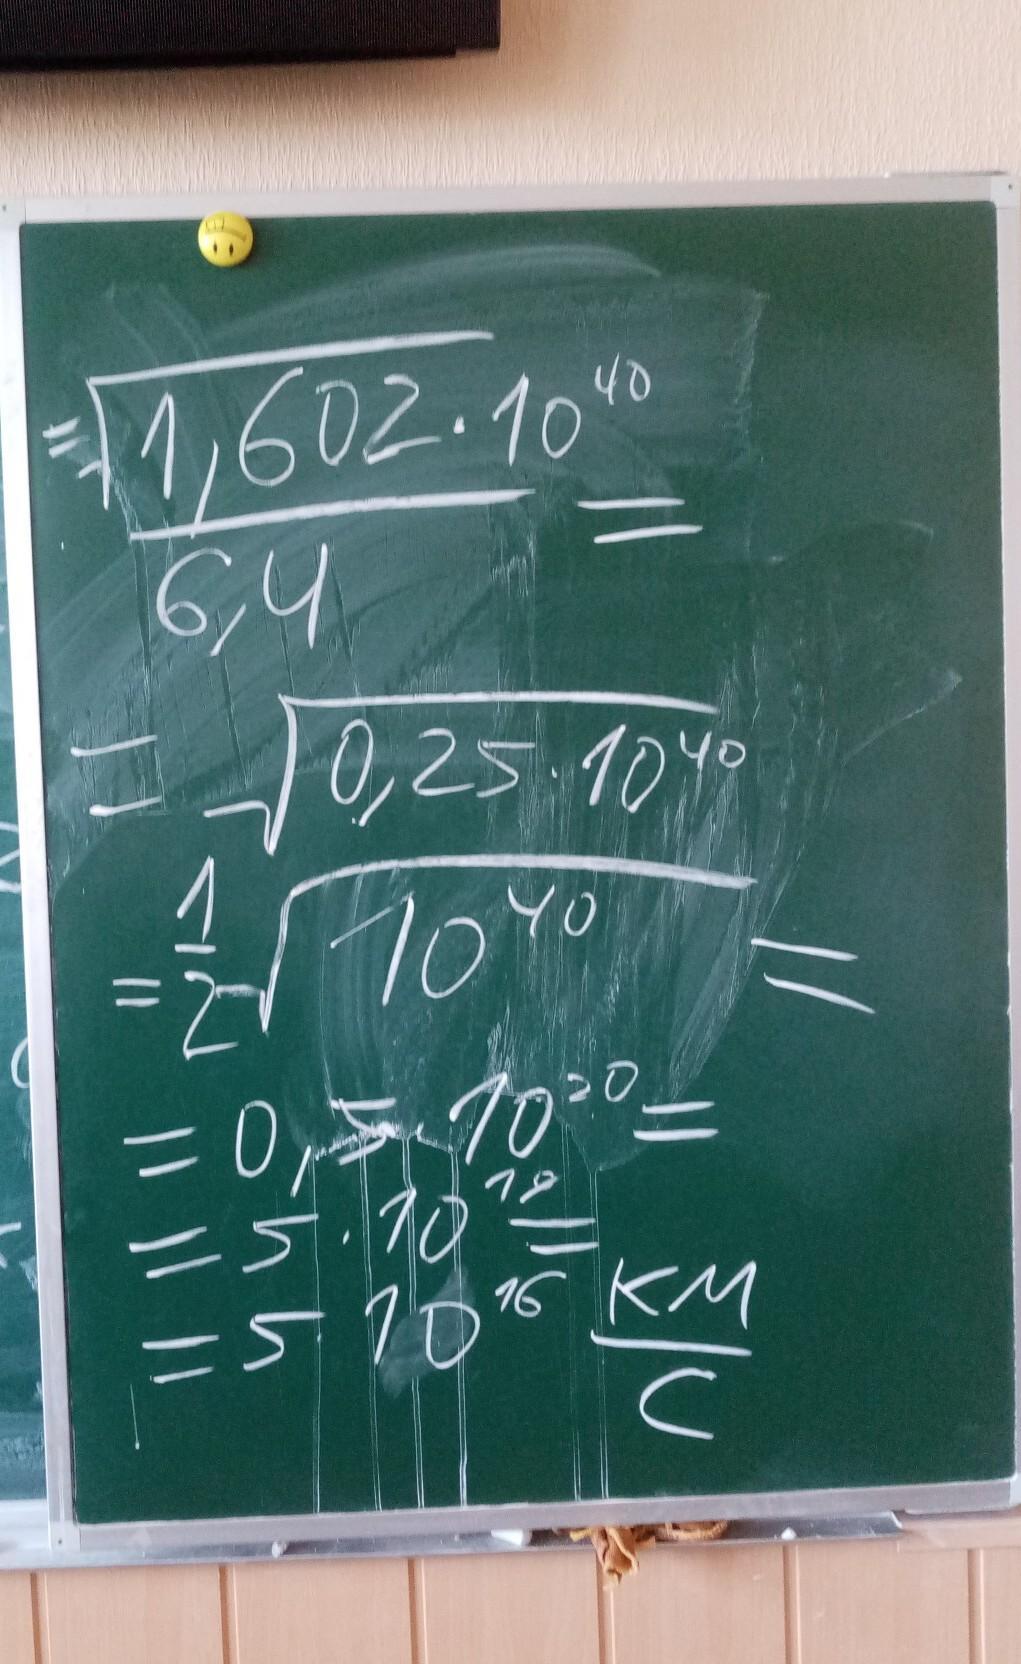 = √1,602 · 10⁴⁰ =
6,4
= √0,25 · 10⁴⁰
= 1/2 √10⁴⁰ =
= 0,5 · 10²⁰ =
= 5 · 10¹⁹ =
= 5 · 10¹⁶ км/с